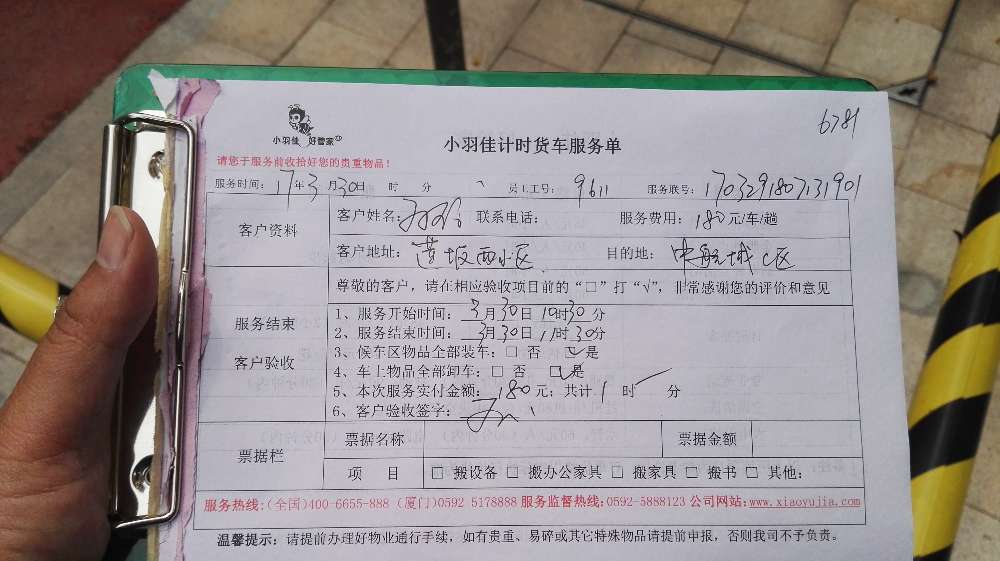 6781
小羽佳 好管家
小羽佳计时货车服务单
请您于服务前收拾好您的贵重物品！
服务时间：17年3月30日 时 分 员工工号：9611 服务联号：1703291807131901
客户资料
客户姓名： 联系电话： 服务费用：180元/车/趟
客户地址：莲坂西小区 目的地：中航城C区
尊敬的客户，请在相应验收项目前的“□”打“√”，非常感谢您的评价和意见
服务结束
客户验收
1、服务开始时间：3月30日10时30分
2、服务结束时间：3月30日11时30分
3、候车区物品全部装车：□ 否 □是
4、车上物品全部卸车：□ 否 □是
5、本次服务实付金额：180元；共计1时 分
6、客户验收签字：
票据栏
票据名称 票据金额
项 目 □ 搬设备 □ 搬办公家具 □ 搬家具 □ 搬书 □ 其他：
服务热线：(全国)400-6655-888 (厦门)0592 5178888 服务监督热线：0592-5888123 公司网站：www.xiaoyujia.com
温馨提示：请提前办理好物业通行手续，如有贵重、易碎或其它特殊物品请提前申报，否则我司不予负责。